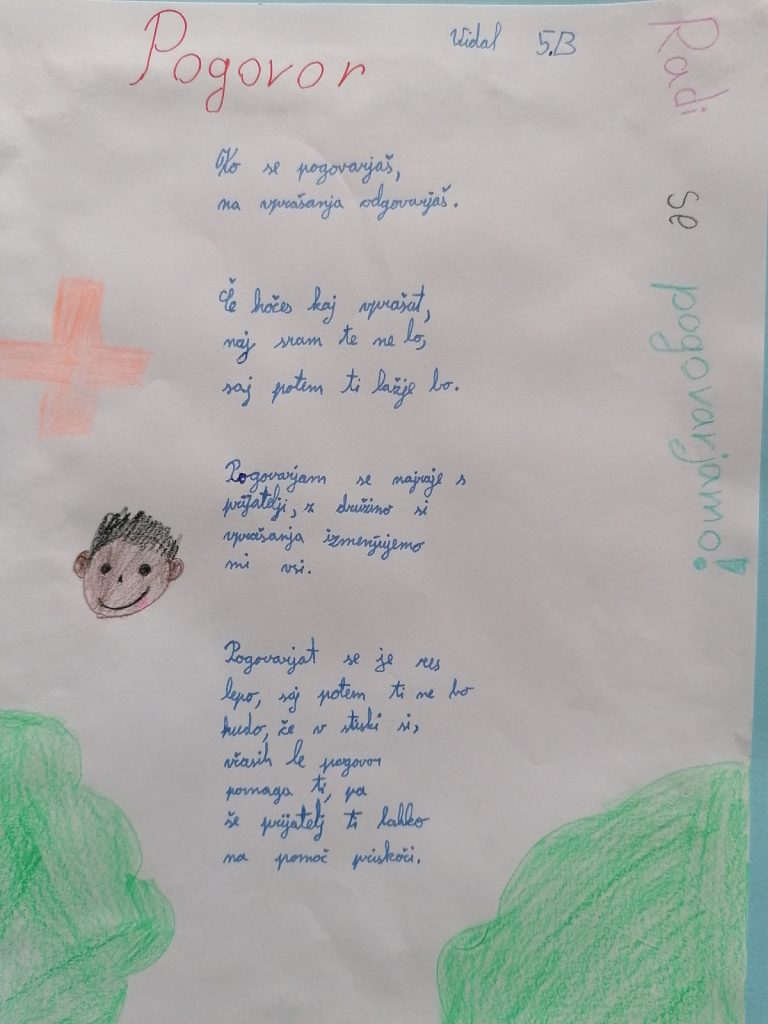 Pogovor
Vidal 5.B
Radi se pogovarjamo!
Ko se pogovarjaš,
na vprašanja odgovarjaš.
Če hočes kaj vprašat,
naj sram te ne bo,
saj potem ti lažje bo.
Pogovarjam se najraje s
prijatelji, z družino si
vprašanja izmenjujemo
mi vsi.
Pogovarjat se je res
lepo, saj potem ti ne bo
hudo, če v stiski si,
včasih le pogovor
pomaga ti, pa
še prijatelj ti lahko
na pomoč priskoči.